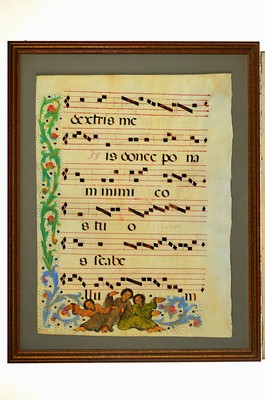 dextris me
is donec po na
m mimi co
s tu o
s scabe
llu m